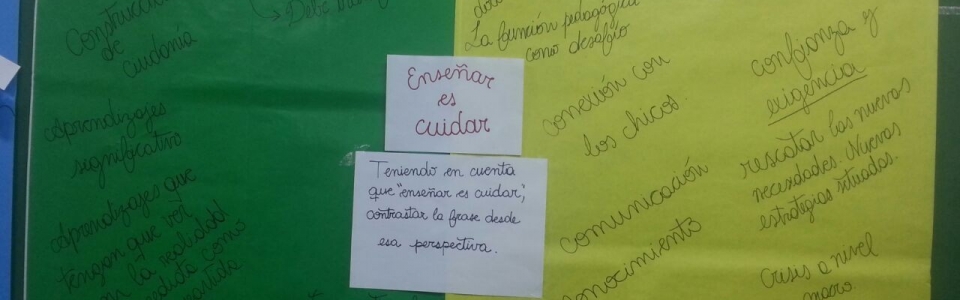 de
ciudania
Debe
Aprendizajes
significativo
Aprendizajes que
tengan que ver
la realidad
Enseñar
es
cuidar
Teniendo en cuenta
que "enseñar es cuidar",
contrastar la frase desde
esa perspectiva.
La función pedagógica
como desafío
conexión con
los chicos
comunicación
conocimiento
confianza y
exigencia
rescatar las nuevas
necesidades. Nuevas
estrategias situadas.
Crisis a nivel
macro.